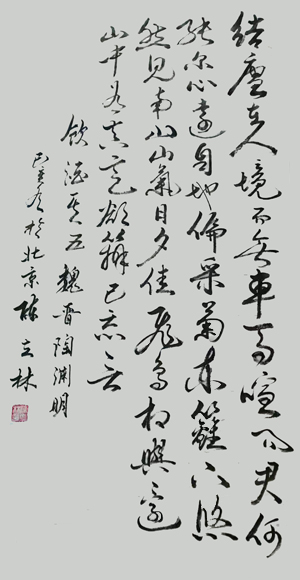 結廬在人境而无車马喧问君何
能尔心遠自地偏采菊东籬下悠
然见南山山氣日夕佳飛鸟相與還
此中有真意欲辩已忘言
飲酒其五魏晋陶渊明
己亥冬於北京陈立林